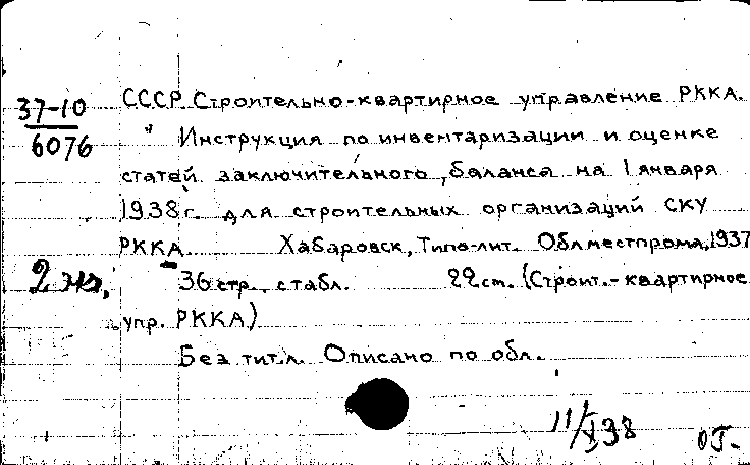 37-10
6076
СССР. Строительно-квартирное управление РККА.
" Инструкция по инвентаризации и оценке
статей заключительного баланса на 1 января
1938 г. для строительных организаций СКУ
РККА. Хабаровск, Типо-лит. Облместпрома, 1937
2 экз.
36 стр., с табл. 22 см. (Строит.-квартирное
упр. РККА)
Без тит. л. Описано по обл.
11/X 38